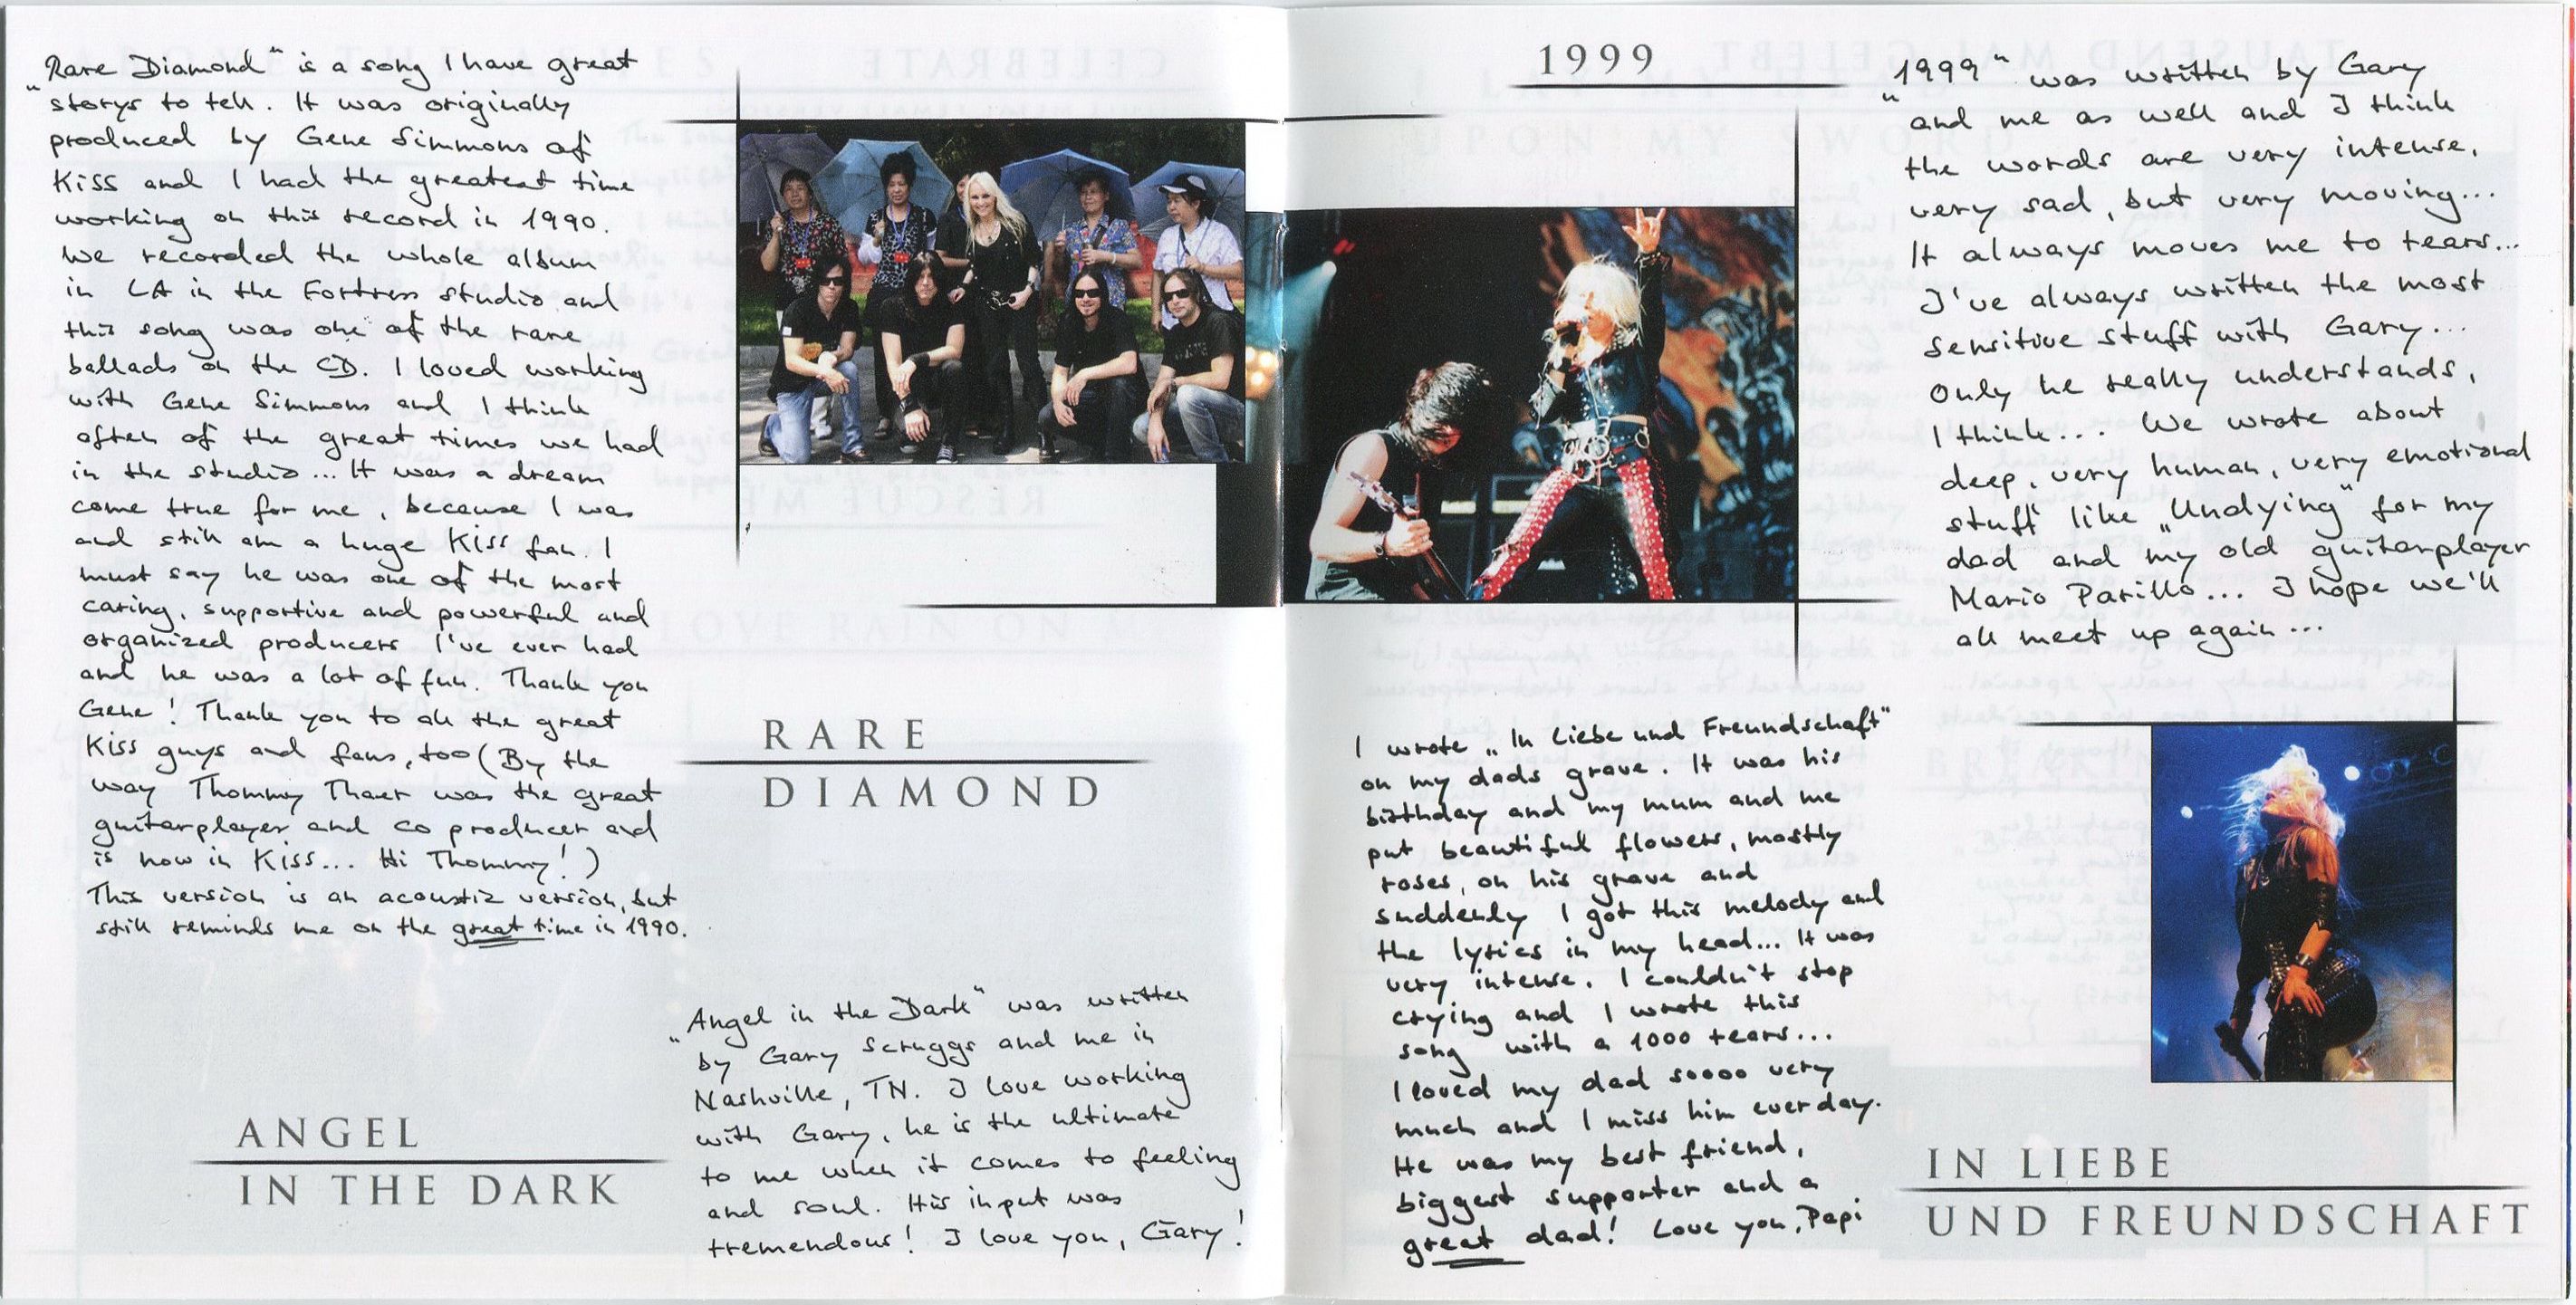 „Rare Diamond“ is a song I have great
storys to tell. It was originally
produced by Gene Simmons of
Kiss and I had the greatest time
working on this record in 1990.
We recorded the whole album
in LA in the Fortress studio and
this song was one of the rare
ballads on the CD. I loved working
with Gene Simmons and I think
often of the great times we had
in the studio... It was a dream
come true for me, because I was
and still am a huge Kiss fan. I
must say he was one of the most
caring, supportive and powerful and
organized producers I've ever had
and he was a lot of fun. Thank you
Gene! Thank you to all the great
Kiss guys and fans, too (By the
way Thommy Thaer was the great
guitarplayer and co producer and
is now in Kiss... Hi Thommy!)
This version is an acoustic version, but
still reminds me on the great time in 1990.
RARE
DIAMOND
ANGEL
IN THE DARK
„Angel in the Dark“ was written
by Gary Scruggs and me in
Nashville, TN. I love working
with Gary, he is the ultimate
to me when it comes to feeling
and soul. His input was
tremendous! I love you, Gary!
1999
„1999“ was written by Gary
and me as well and I think
the words are very intense,
very sad, but very moving...
It always moves me to tears...
I've always written the most
sensitive stuff with Gary...
Only he really understands,
I think... We wrote about
deep, very human, very emotional
stuff like „Undying“ for my
dad and my old guitarplayer
Mario Parillo... I hope we'll
all meet up again...
I wrote „In Liebe und Freundschaft“
on my dads grave. It was his
birthday and my mum and me
put beautiful flowers, mostly
roses, on his grave and
suddenly I got this melody and
the lyrics in my head... It was
very intense. I couldn't stop
crying and I wrote this
song with a 1000 tears...
I loved my dad soooo very
much and I miss him everday.
He was my best friend,
biggest supporter and a
great dad! Love you, Papi
IN LIEBE
UND FREUNDSCHAFT